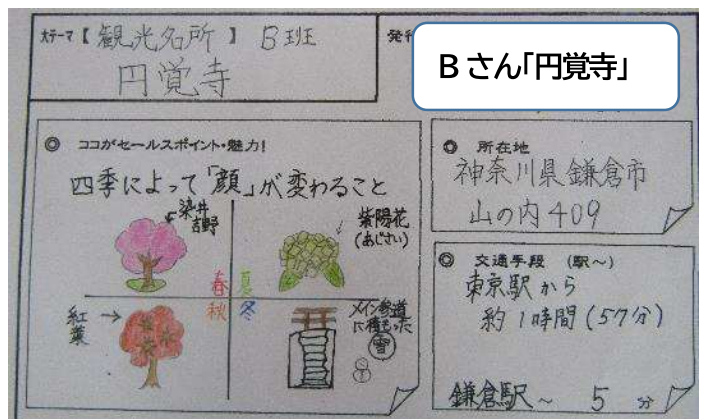 大テーマ【観光名所】B班
円覚寺
発行
Bさん「円覚寺」
◎ ココがセールスポイント・魅力!
四季によって「顔」が変わること
染井
吉野
紫陽花
(あじさい)
春 夏
秋 冬
紅葉
メイン参道
に積もった
雪
◎ 所在地
神奈川県鎌倉市
山の内409
◎ 交通手段 (駅~)
東京駅から
約1時間(57分)
鎌倉駅~ 5分